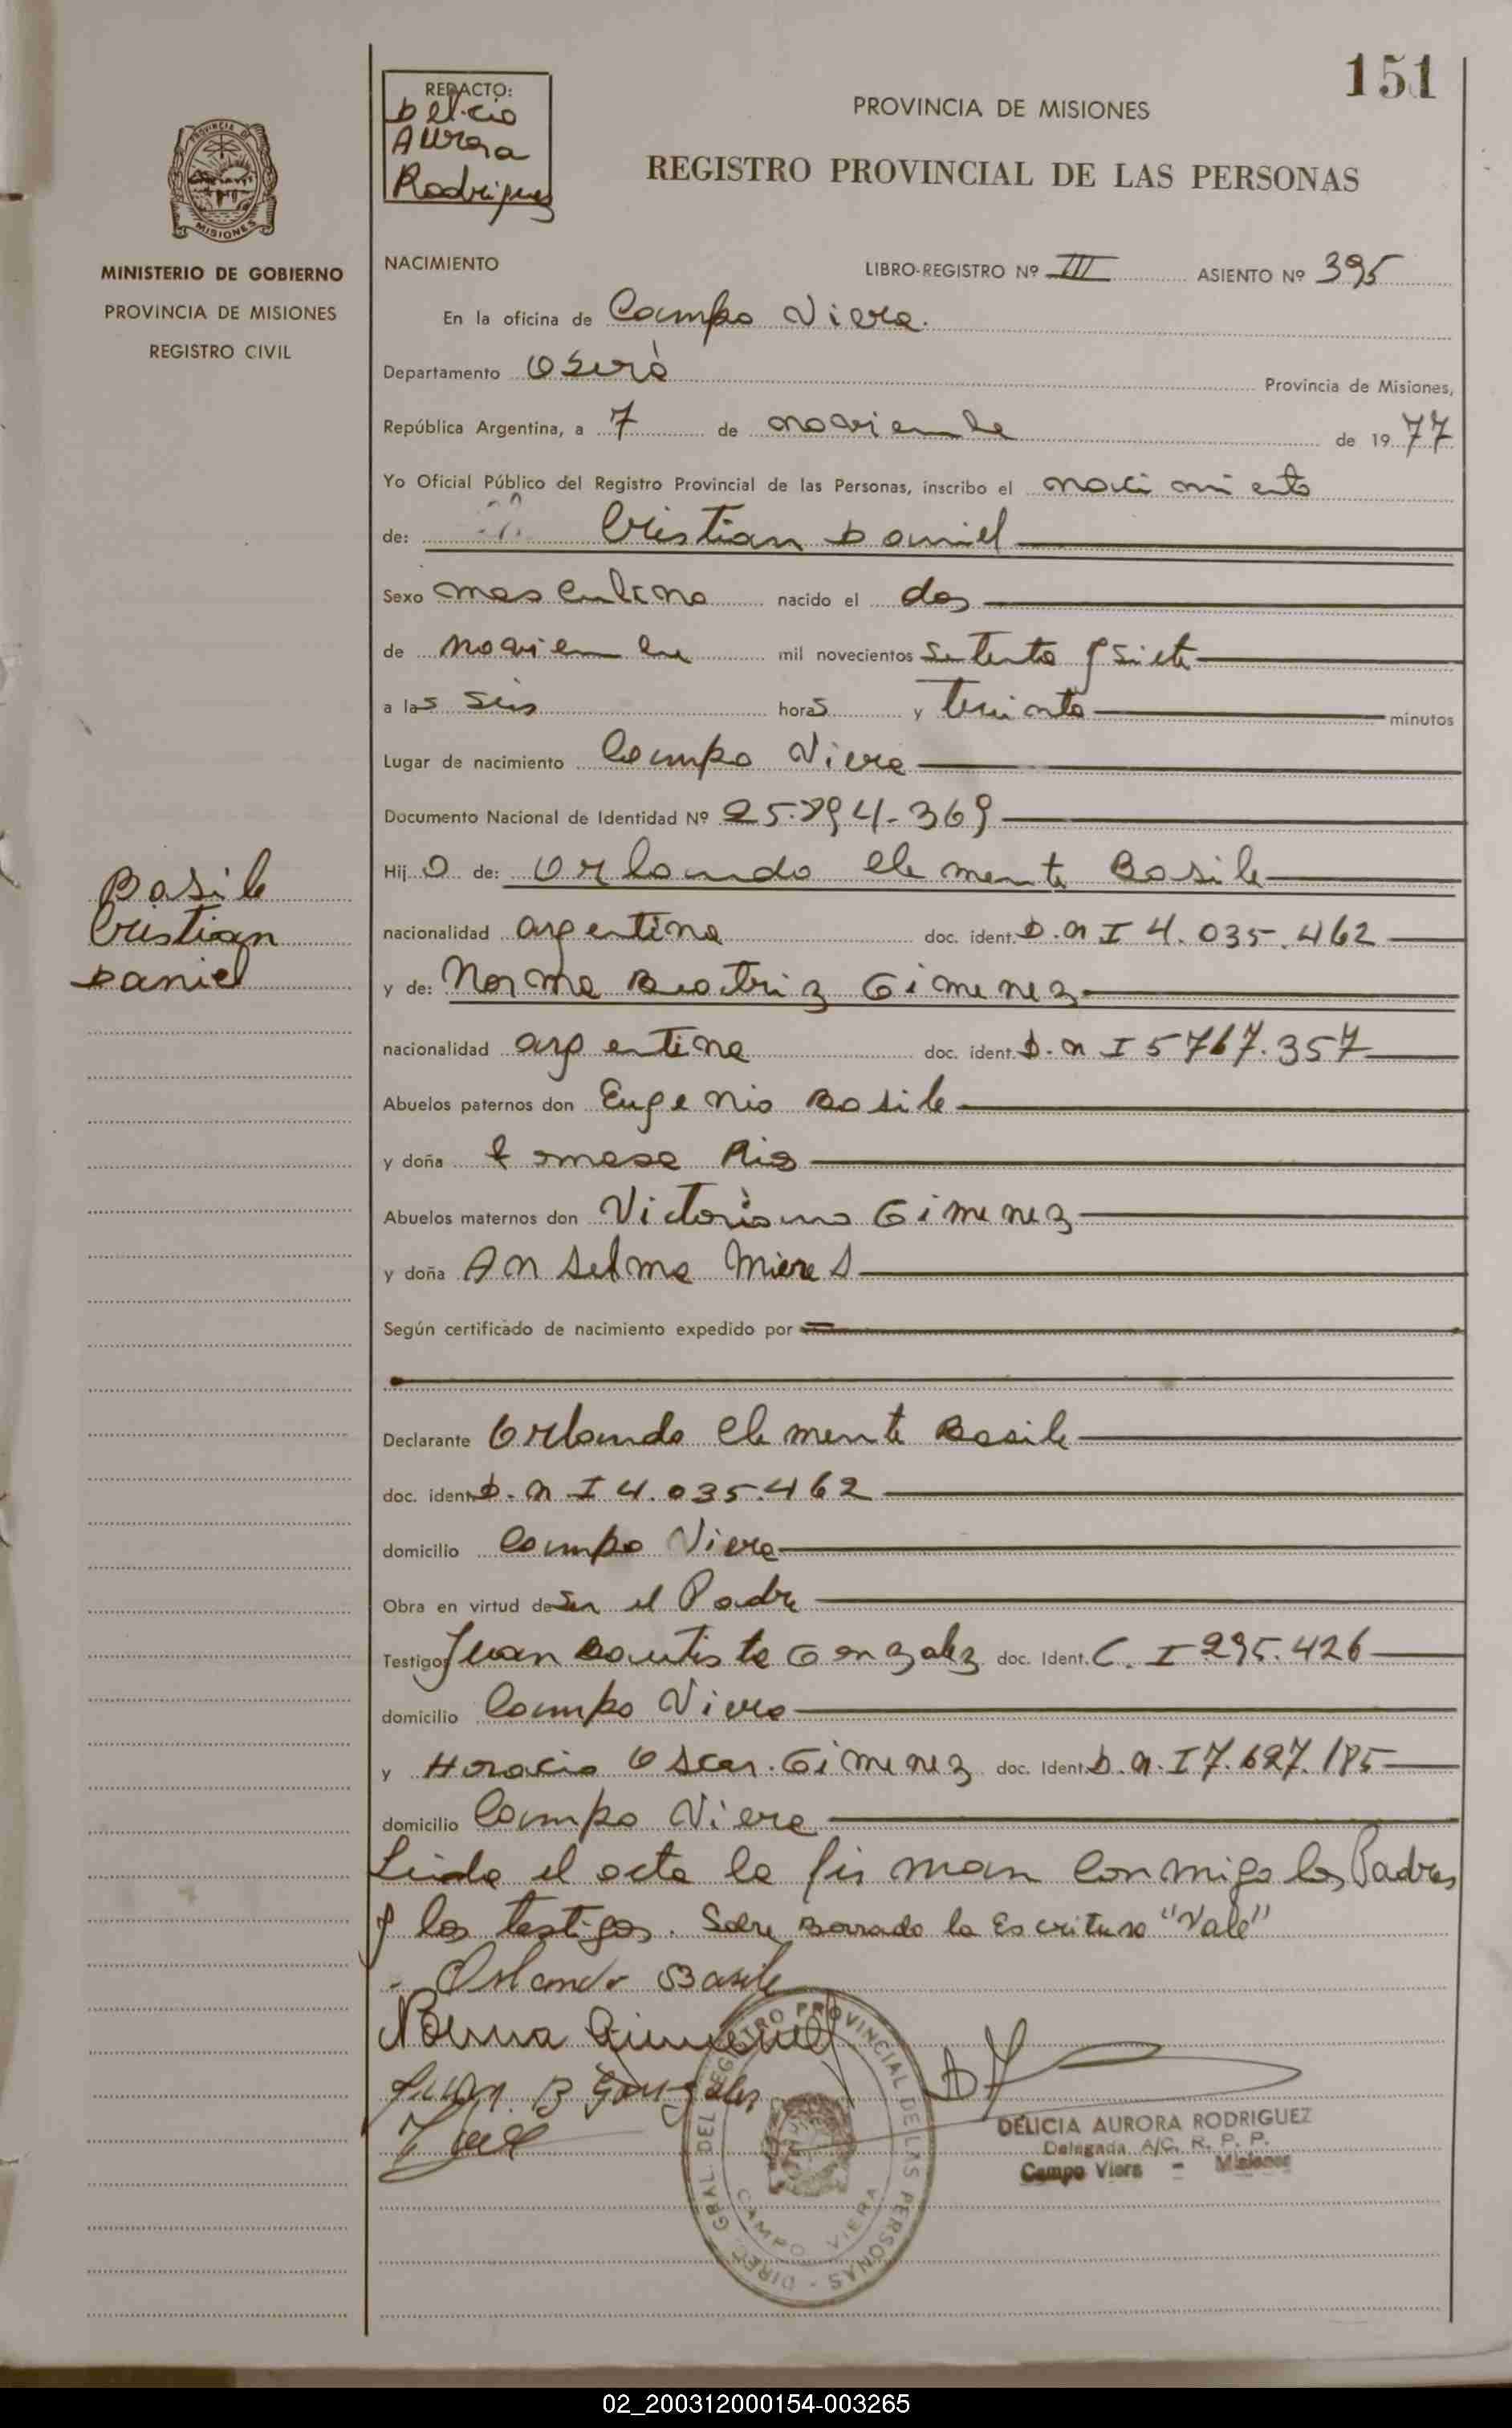 151
REDACTO:
Delicio
Aurora
Rodriguez
PROVINCIA DE MISIONES
REGISTRO PROVINCIAL DE LAS PERSONAS
PROVINCIA D MISIONES
MINISTERIO DE GOBIERNO
PROVINCIA DE MISIONES
REGISTRO CIVIL
NACIMIENTO LIBRO-REGISTRO Nº III ASIENTO Nº 395
En la oficina de Campo Viera.
Departamento Oberà Provincia de Misiones,
República Argentina, a 7 de noviembre de 19 77
Yo Oficial Público del Registro Provincial de las Personas, inscribo el nacimiento
de: Cristian Daniel
Sexo masculino nacido el dos
de noviembre mil novecientos setenta y siete
a las seis horas y treinta minutos
Lugar de nacimiento Campo Viera
Documento Nacional de Identidad Nº 25.894-369
Hij o de: Orlando Clemente Basile
nacionalidad argentina doc. ident. D.N I 4.035.462
y de: Norma Beatriz Gimenez
nacionalidad argentina doc. ident. D.N I 5767.357
Abuelos paternos don Eugenio Basile
y doña Tomasa Rios
Abuelos maternos don Victoriano Gimenez
y doña Anselma Mieres
Según certificado de nacimiento expedido por
Declarante Orlando Clemente Basile
doc. ident. D.N.I 4.035.462
domicilio Campo Viera
Obra en virtud de ser el Padre
Testigos Juan Bautista Gonzalez doc. Ident. C. I 295.426
domicilio Campo Viera
y Horacio Oscar. Gimenez doc. Ident. D.N.I 7.627.185
domicilio Campo Viera
Leida el acta la firman conmigo los Padres
y los testigos. Sobre Borrado la Escritura "Vale"
Orlando Basile
Norma Gimenez
Juan. B Gonzalez
Basile
Cristian
Daniel
DIREC. GRAL. DEL REGISTRO PROVINCIAL DE LAS PERSONAS
CAMPO VIERA
DELICIA AURORA RODRIGUEZ
Delegada A/C. R. P. P.
Campo Viera - Misiones
02_200312000154-003265